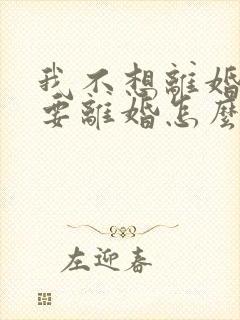 我不想離婚
要離婚怎麼
左迎春